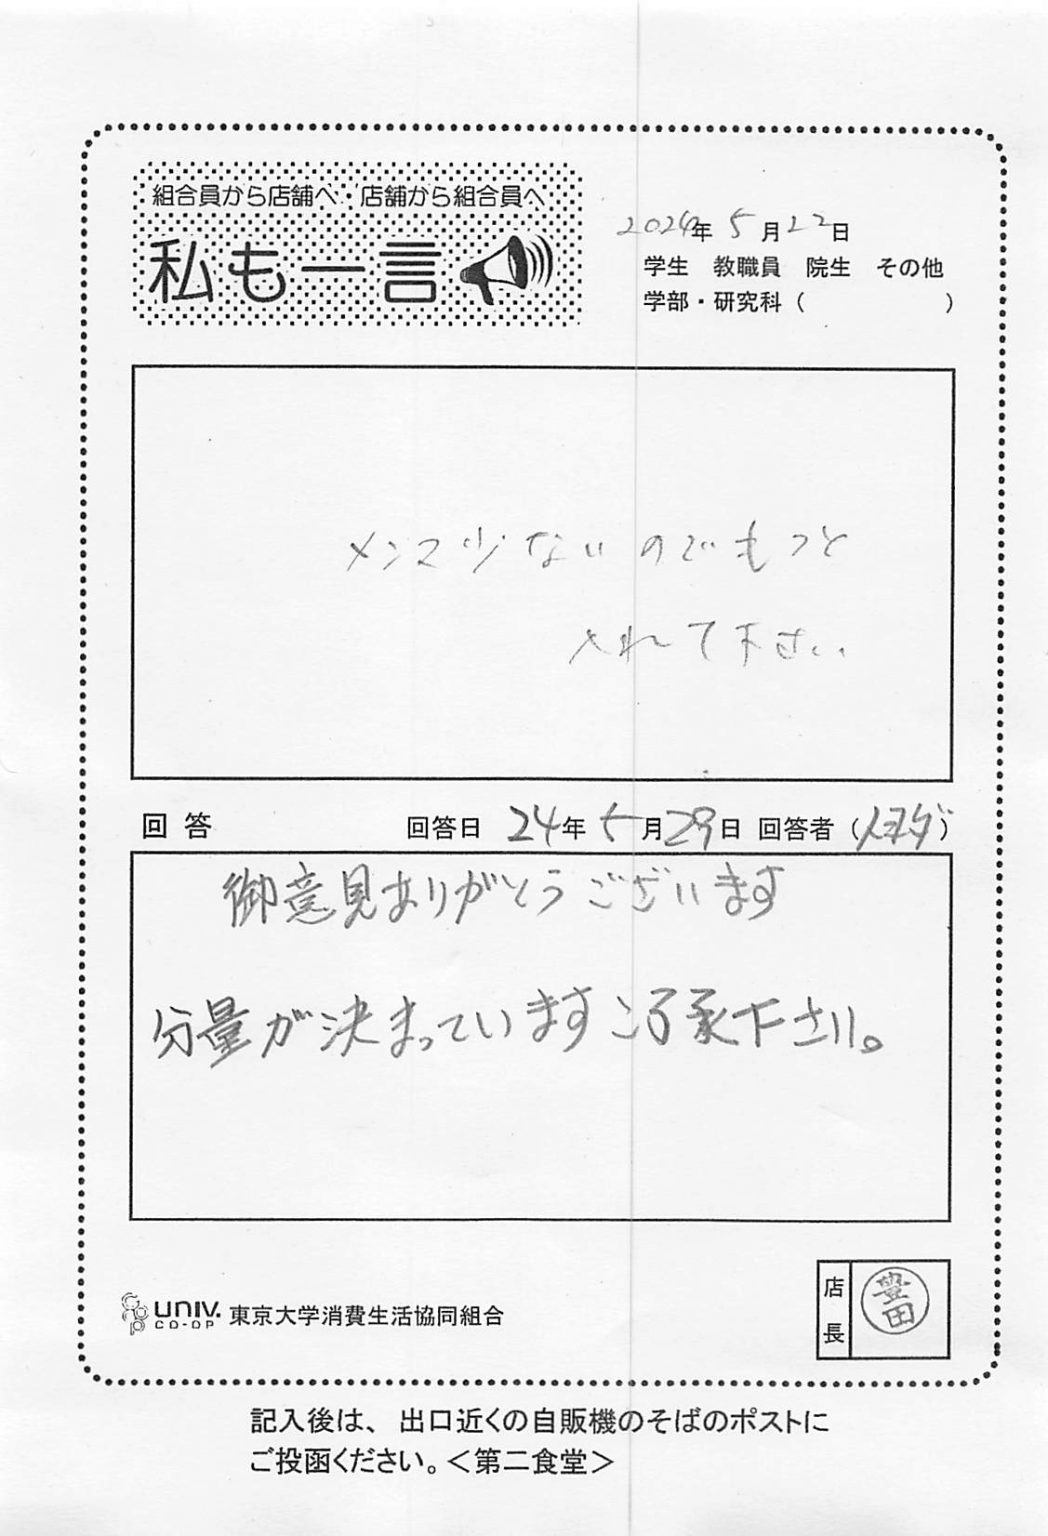 組合員から店舗へ・店舗から組合員へ
私も一言
2024年 5月22日
学生 教職員 院生 その他
学部・研究科( )
メンマ少ないのでもっと
入れて下さい
回答 回答日 24年 5月29日 回答者( )
御意見ありがとうございます
分量が決まっています ご了承下さい。
UNIV. CO-OP 東京大学消費生活協同組合
店長 豊田
記入後は、出口近くの自販機のそばのポストに
ご投函ください。<第二食堂>